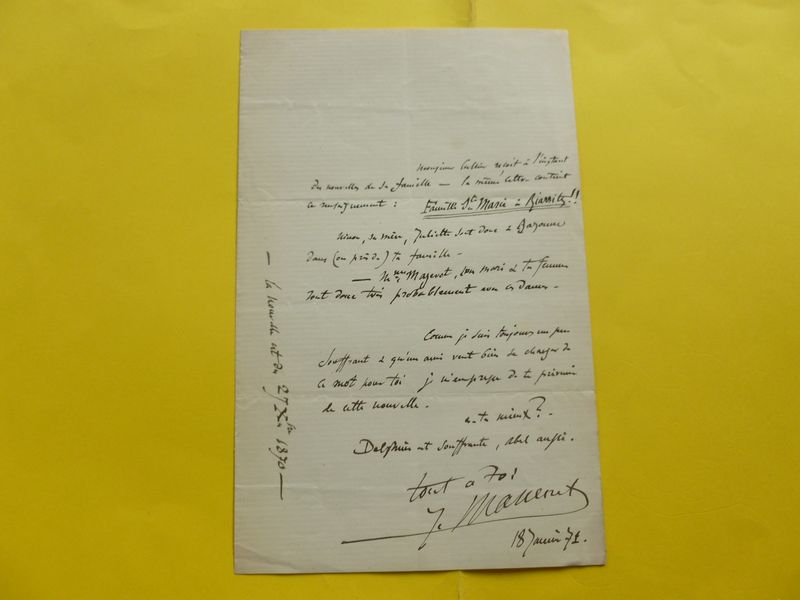 Monsieur reçoit à l'instant
Des nouvelles de sa famille — la même lettre contient
ce renseignement : Famille Ste Marie à Biarritz !!
Ninon, sa mère, Juliette sont donc à Bayonne
dans (ou près de) ta famille —
— Mme Mazerot, son mari & ta femme
sont donc très probablement avec ces Dames —
Comme je suis toujours un peu
souffrant & qu'un ami veut bien se charger de
ce mot pour toi je m'empresse de te prévenir
de cette nouvelle .
va-tu mieux ? -
Delphine est souffrante, abel aussi .
tout a toi
J. Massenet
18 Janvier 71 .
— la nouvelle est du 27 Xbre 1870 —